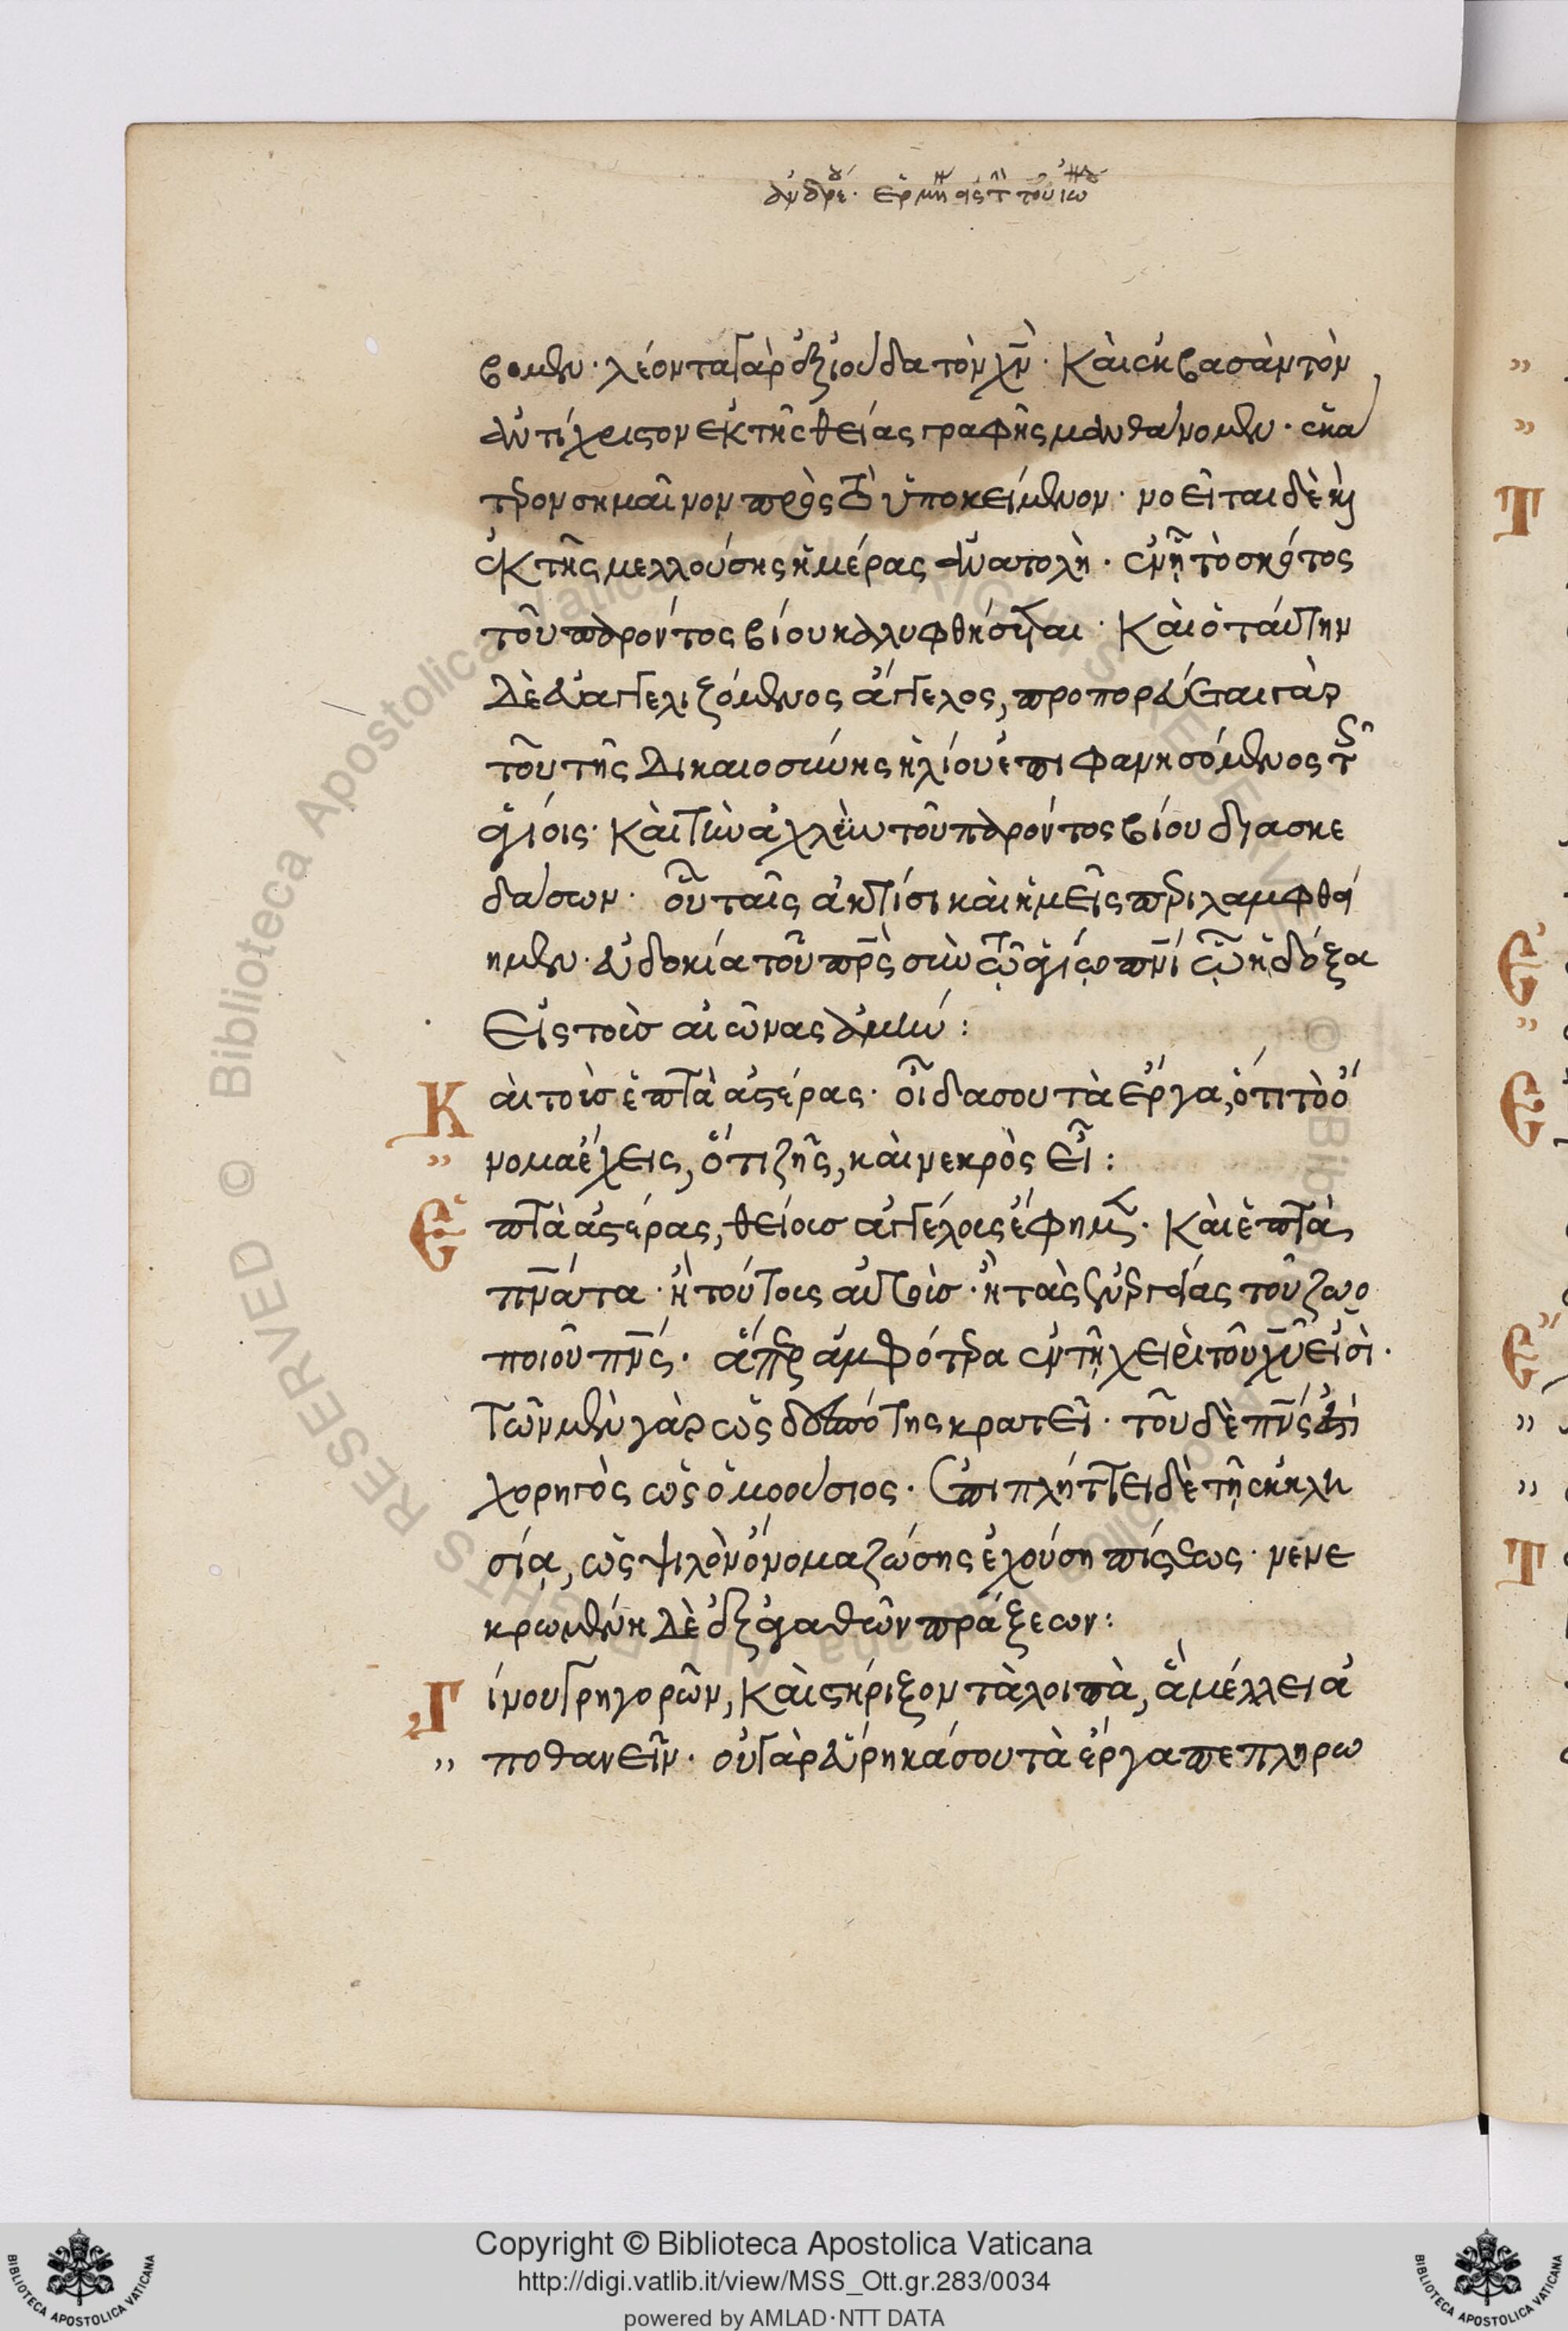 ἀνδρέου ἑρμηνεία εἰς τὴν τοῦ ἰω ἀπο
βομεν· λέοντα γὰρ ἐξ ἰούδα τὸν χν̄· Καὶ ἐκ βασὰν τὸν
ἀντίχριστον ἐκ τῆς θείας γραφῆς μανθάνομεν· ἑκά
τερον σημαῖνον πρὸς τὸ ὑποκείμενον· νοεῖται δὲ καὶ
ἐκ τῆς μελλούσης ἡμέρας ἀνατολὴ· ἐν ᾗ τὸ σκότος
τοῦ παρόντος βίου καλυφθήσεται· Καὶ ὁ ταύτην
δὲ εὐαγγελιζόμενος ἄγγελος, προπορεύεται γὰρ
τοῦ τῆς δικαιοσύνης ἡλίου ἐπιφανησόμενος τοῖς
ἁγίοις· Καὶ τὴν ἀχλὺν τοῦ παρόντος βίου διασκε
δάσων· οὗ ταῖς ἀκτίσι καὶ ἡμεῖς περιλαμφθεί
ημεν· εὐδοκία τοῦ πρς̄ σὺν τῷ ἁγίῳ πνί̄ ᾧ ἡ δόξα
Εἰς τοὺς αἰῶνας ἀμήν:
Καὶ τοὺς ἑπτὰ ἀστέρας· οἶδα σου τὰ ἔργα, ὅτι τὸ ὄ
νομα ἔχεις, ὅτι ζῇς, καὶ νεκρὸς εἶ:
Ἑπτὰ ἀστέρας, θείους ἀγγέλους ἔφημεν· Καὶ ἑπτὰ
πνᾱ́τα· ἢ τούτους αὐτοὺς· ἢ τὰς ἐνεργείας τοῦ ζωο
ποιοῦ πνς̄· ἅπερ ἀμφότερα ἐν τῇ χειρὶ τοῦ χῡ εἰσὶ·
Τῶν μὲν γὰρ ὡς δεσπότης κρατεῖ· τοῦ δὲ πνς̄ ἐπι
χορηγὸς ὡς ὁμοούσιος· ἐπιπλήττει δὲ τῇ ἐκκλη
σίᾳ, ὡς ψιλὸν ὄνομα ζώσης ἐχούση πίστεως· νενε
κρωμένη δὲ ἐξ ἀγαθῶν πράξεων:
Γίνου γρηγορῶν, Καὶ στήριξον τὰ λοιπὰ, ἃ μέλλει ἀ
ποθανεῖν· οὐ γὰρ εὕρηκά σου τὰ ἔργα πεπληρω
© Biblioteca Apostolica Vaticana ALL RIGHTS RESERVED
Copyright © Biblioteca Apostolica Vaticana
http://digi.vatlib.it/view/MSS_Ott.gr.283/0034
powered by AMLAD·NTT DATA
BIBLIOTECA APOSTOLICA VATICANA
BIBLIOTECA APOSTOLICA VATICANA